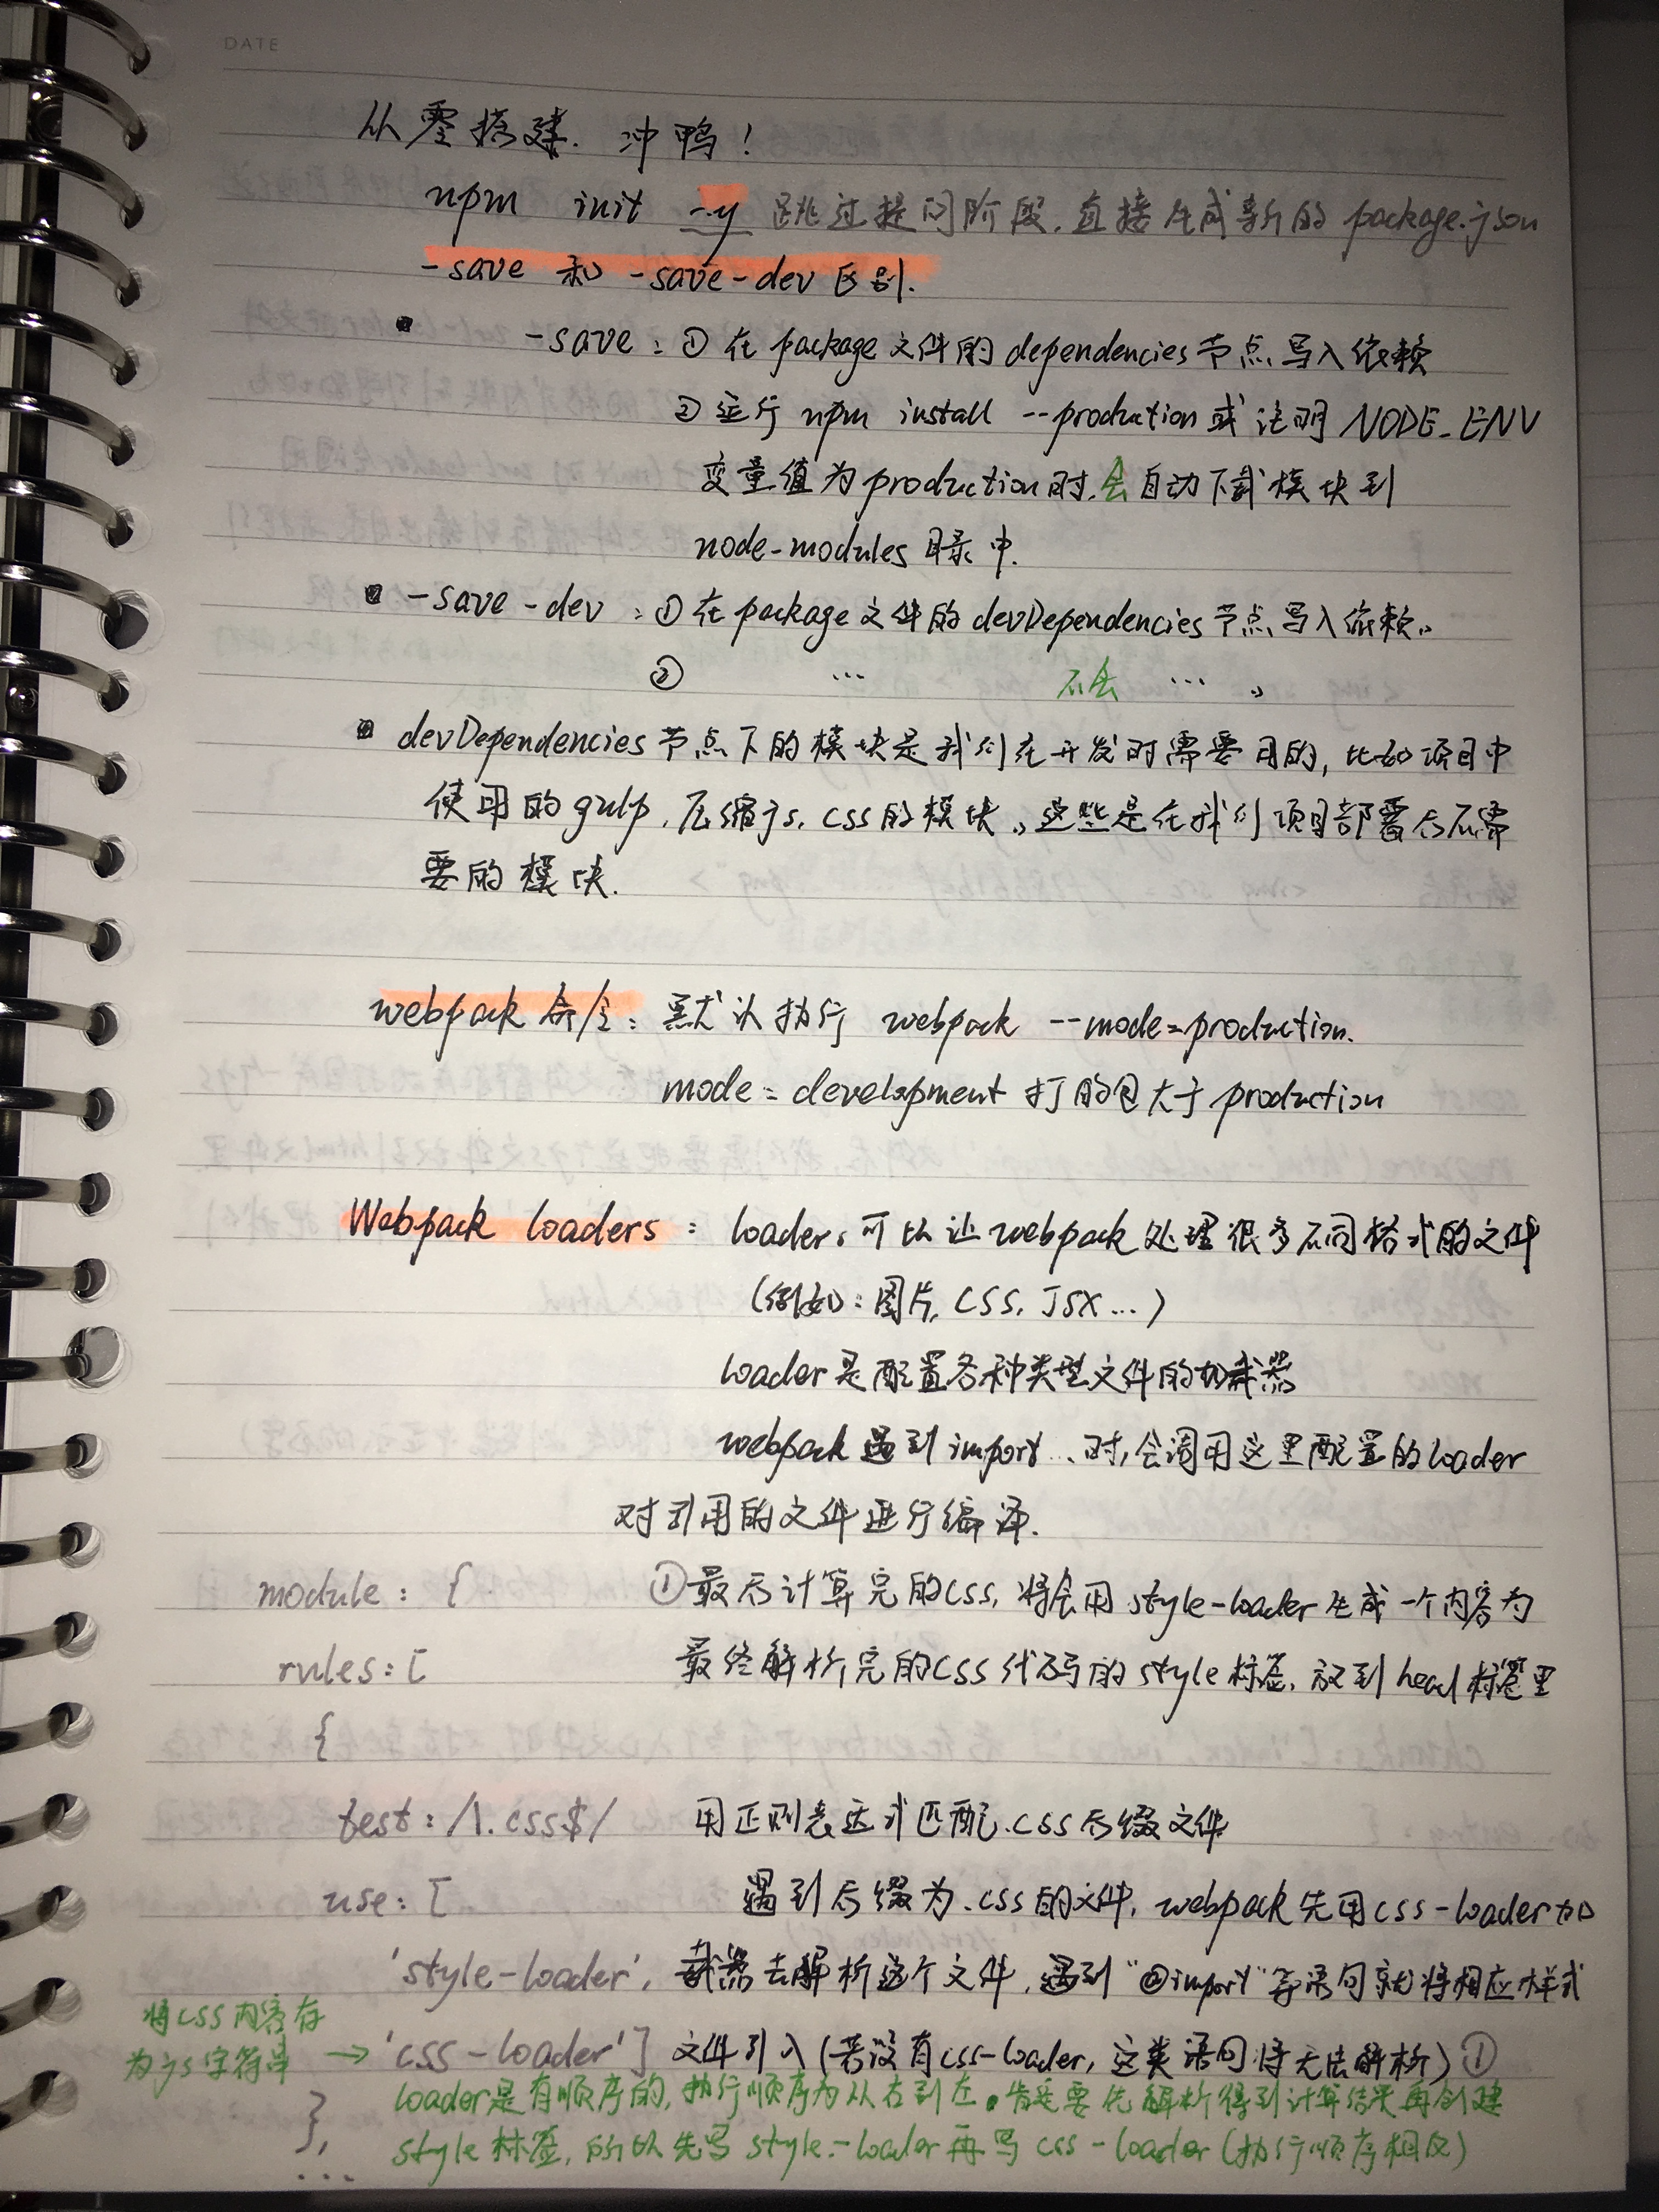 DATE
从零搭建. 冲鸭！
npm init -y 跳过提问阶段.直接生成新的package.json
-save 和 -save-dev区别.
-save：① 在package文件的dependencies节点写入依赖
② 运行 npm install --production或注明 NODE_ENV
变量值为production时.会自动下载模块到
node-modules目录中.
-save-dev：① 在package文件的devDependencies节点写入依赖。
② … 不会 … 。
devDependencies节点下的模块是我们在开发时需要用的, 比如项目中
使用的gulp, 压缩js, css的模块。这些是在我们项目部署后不需
要的模块.
webpack命令：默认执行 webpack --mode=production.
mode=development打的包大于production
Webpack loaders：loader, 可以让webpack处理很多不同格式的文件
(例如：图片, CSS, JSX...)
loader是配置各种类型文件的加载器
webpack遇到import...时,会调用这里配置的loader
对引用的文件进行编译.
module：{ ①最后计算完的CSS, 将会用style-loader生成一个内容为
rules：[ 最终解析完的CSS代码的style标签, 放到head标签里
{
test：/\.css$/ 用正则表达式匹配.css后缀文件
use：[ 遇到后缀为.css的文件, webpack先用css-loader加
'style-loader', 载器去解析这个文件, 遇到"@import"等语句就将相应样式
将CSS内容存
为js字符串 → 'css-loader'] 文件引入(若没有css-loader, 这类语句将无法解析)①
loader是有顺序的, 执行顺序为从右到左。肯定要先解析得到计算结果再创建
}, style标签, 所以先写style-loader再写css-loader(执行顺序相反)
...